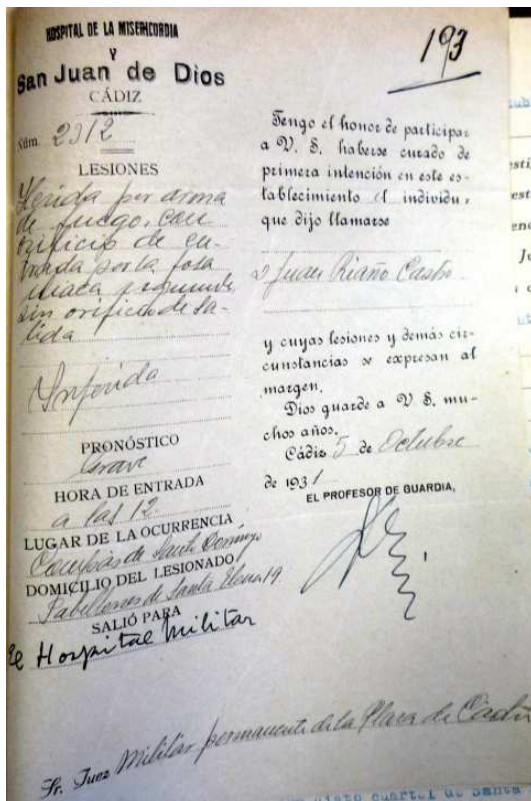 HOSPITAL DE LA MISERICORDIA
Y
San Juan de Dios
CÁDIZ
Núm. 2312
LESIONES
Herida por arma
de fuego, con
orificio de en-
trada por la fosa
iliaca
sin orificio de sa-
lida
Inferida
PRONÓSTICO
Grave
HORA DE ENTRADA
a las 12
LUGAR DE LA OCURRENCIA
de Santo Domingo
DOMICILIO DEL LESIONADO
Pabellones de Santa Elena 19
SALIÓ PARA
el Hospital Militar
193
Tengo el honor de participar
a V. S. haberse curado de
primera intención en este es-
tablecimiento el individuo
que dijo llamarse
D Juan Riaño Castro
y cuyas lesiones y demás cir-
cunstancias se expresan al
margen.
Dios guarde a V S. mu-
chos años.
Cádiz 5 de Octubre
de 1931
EL PROFESOR DE GUARDIA,
Sr. Juez Militar permanente de la Plaza de Cádiz
cuartel de Santa